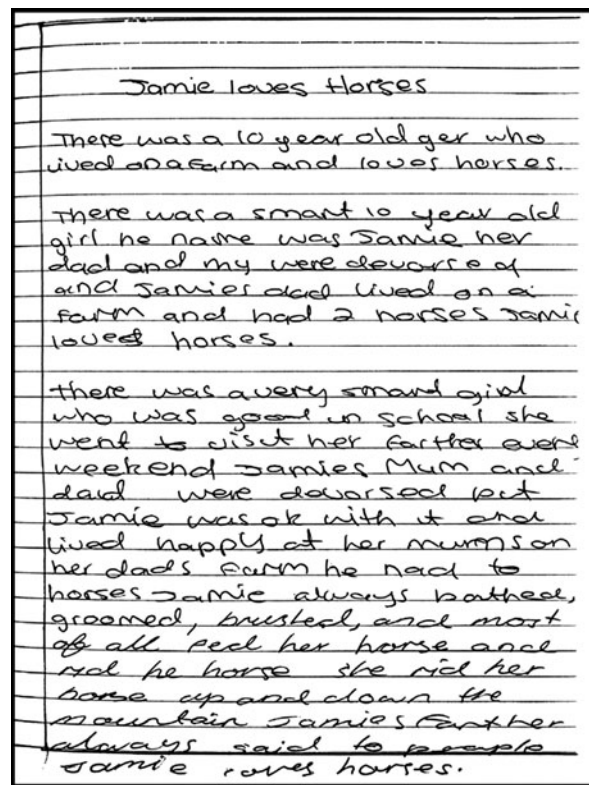 Jamie loves Horses
There was a 10 year old ger who
lived on a farm and loves horses.
There was a smart 10 year old
girl he name was Jamie her
dad and my were devorse of
and Jamies dad lived on a
farm and had 2 horses Jamie
loves horses.
there was a very smard girl
who was good in school she
went to visit her farther every
weekend Jamies Mum and
daid were devorsed but
Jamie was ok with it and
lived happy at her mums on
her dads farm he had to
horses Jamie always bathed,
groomed, brushed, and most
of all fed her horse and
rid he horse she rid her
horse up and down the
mountain Jamies farther
always said to people
Jamie loves horses.